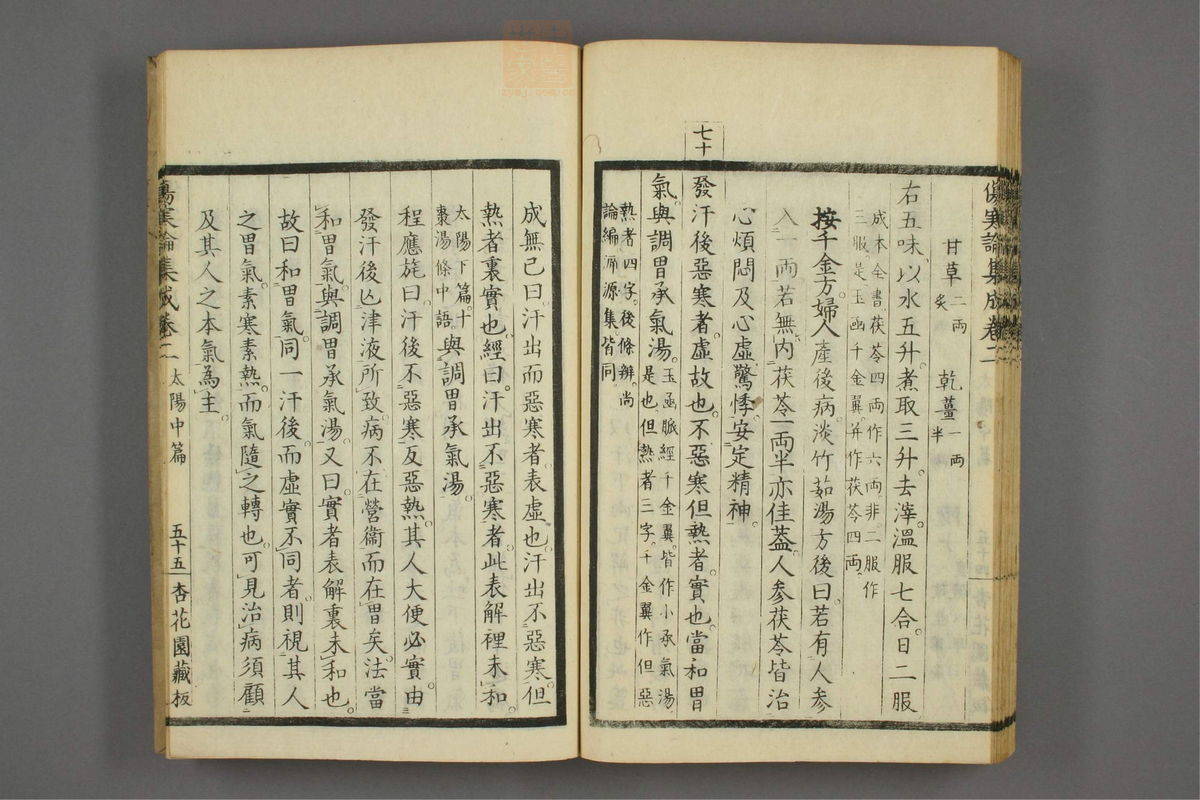 傷寒論集成卷二
甘草二兩炙 乾薑一兩半
右五味以水五升煮取三升去滓溫服七合日二服
成本全書茯苓四兩作六兩非二服作
三服是玉函千金翼并作茯苓四兩
按千金方婦人產後病淡竹茹湯方後曰若有人參
入一兩若無內茯苓一兩半亦佳蓋人參茯苓皆治
心煩悶及心虛驚悸安定精神
七十
發汗後惡寒者虛故也不惡寒但熱者實也當和胃
氣與調胃承氣湯
玉函脈經千金翼皆作小承氣湯
是也但熱者三字千金翼作但惡
熱者四字後條辨尚
論編溯源集皆同
成無己曰汗出而惡寒者表虛也汗出不惡寒但
熱者裏實也經曰汗出不惡寒者此表解裡未和
太陽下篇十
棗湯條中語
與調胃承氣湯
程應旄曰汗後不惡寒反惡熱其人大便必實由
發汗後亾津液所致病不在營衞而在胃矣法當
和胃氣與調胃承氣湯又曰實者表解裏未和也
故曰和胃氣同一汗後而虛實不同者則視其人
之胃氣素寒素熱而氣隨之轉也可見治病須顧
及其人之本氣為主
傷寒論集成卷二 太陽中篇 五十五 杏花園藏板